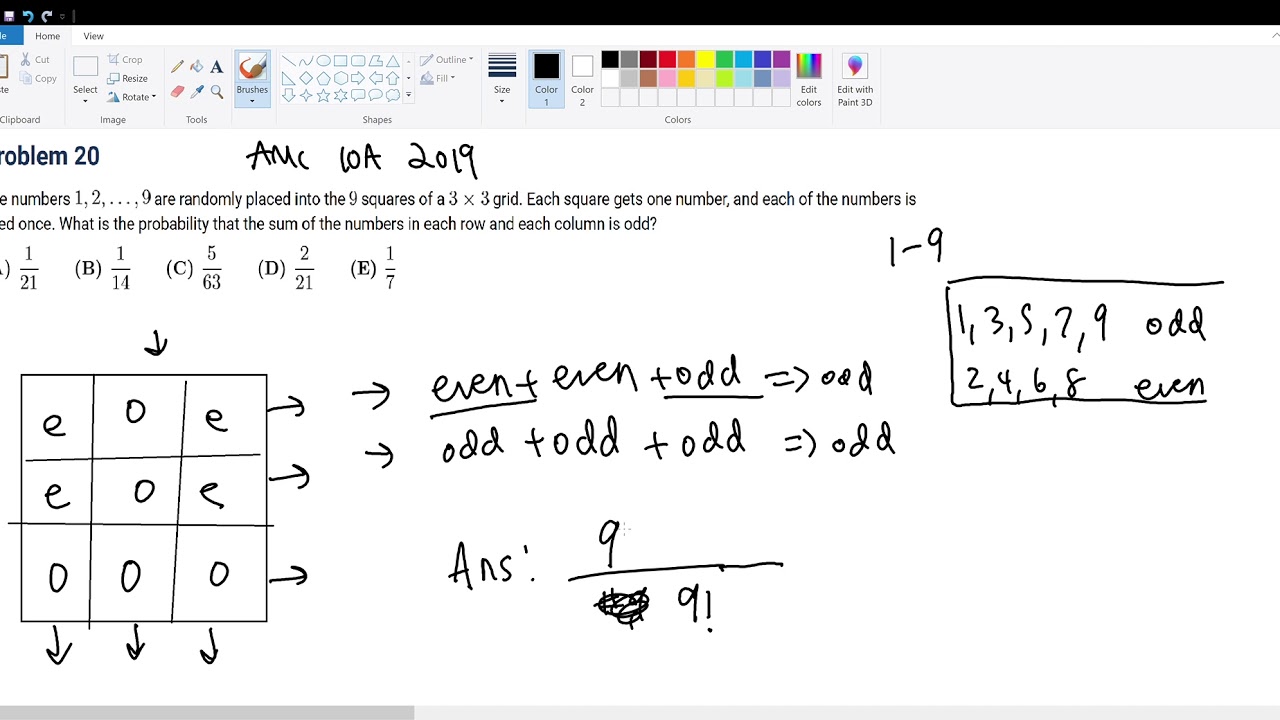 le Home View
Cut
Copy
ste
Clipboard
Select
Crop
Resize
Rotate
Image
A
Tools
Brushes
Outline
Fill
Shapes
Size
Color 1
Color 2
Edit colors
Edit with Paint 3D
Colors
roblem 20 AMC 10A 2019
e numbers 1, 2, . . . , 9 are randomly placed into the 9 squares of a 3 × 3 grid. Each square gets one number, and each of the numbers is
ed once. What is the probability that the sum of the numbers in each row and each column is odd?
) 1/21 (B) 1/14 (C) 5/63 (D) 2/21 (E) 1/7
1-9
1, 3, 5, 7, 9 odd
2, 4, 6, 8 even
↓
e O e →
e O e →
O O O →
↓ ↓ ↓
→ even + even + odd => odd
→ odd + odd + odd => odd
Ans: 9
9!